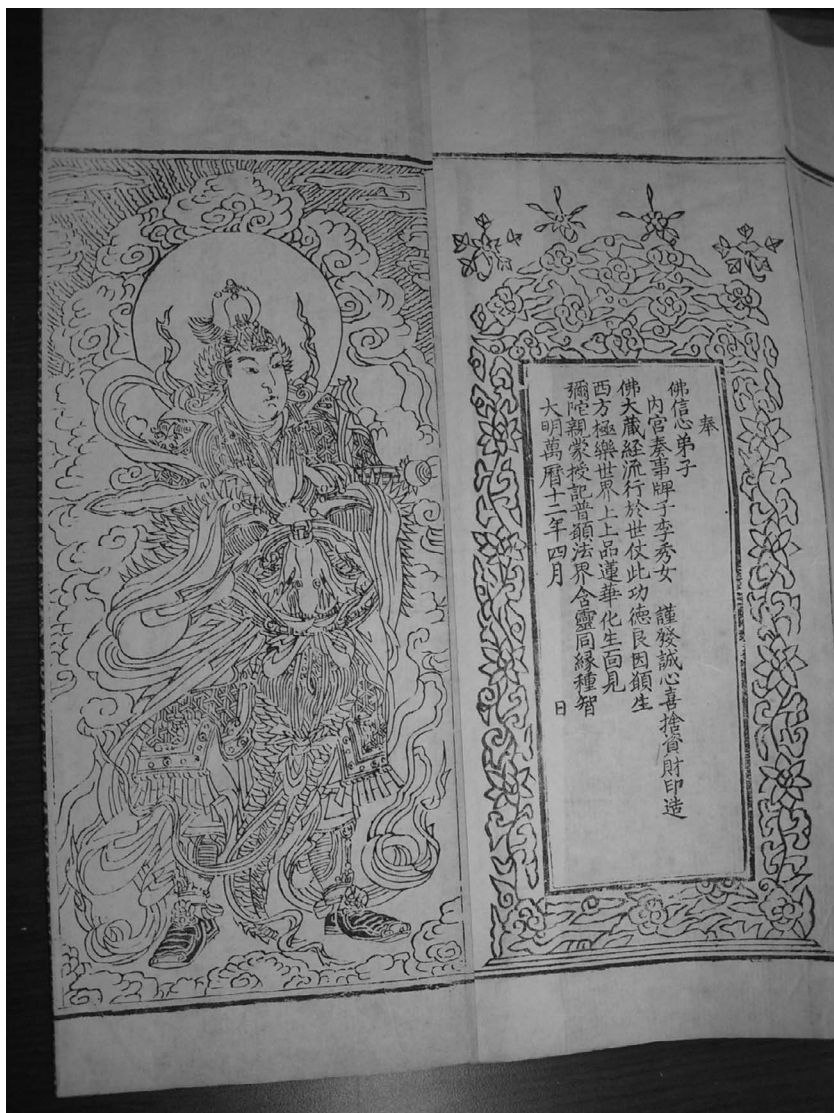 奉
佛信心弟子
內官奏事牌子李秀女 謹發誠心喜捨資財印造
佛大藏経流行於世仗此功德良因願生
西方極樂世界上上品蓮華化生面見
彌陀親蒙授記普願法界含靈同緣種智
大明萬曆十二年四月 日